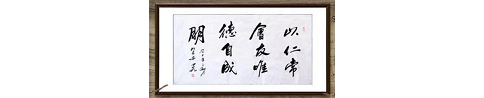 以仁常
會友唯
德自成
朋